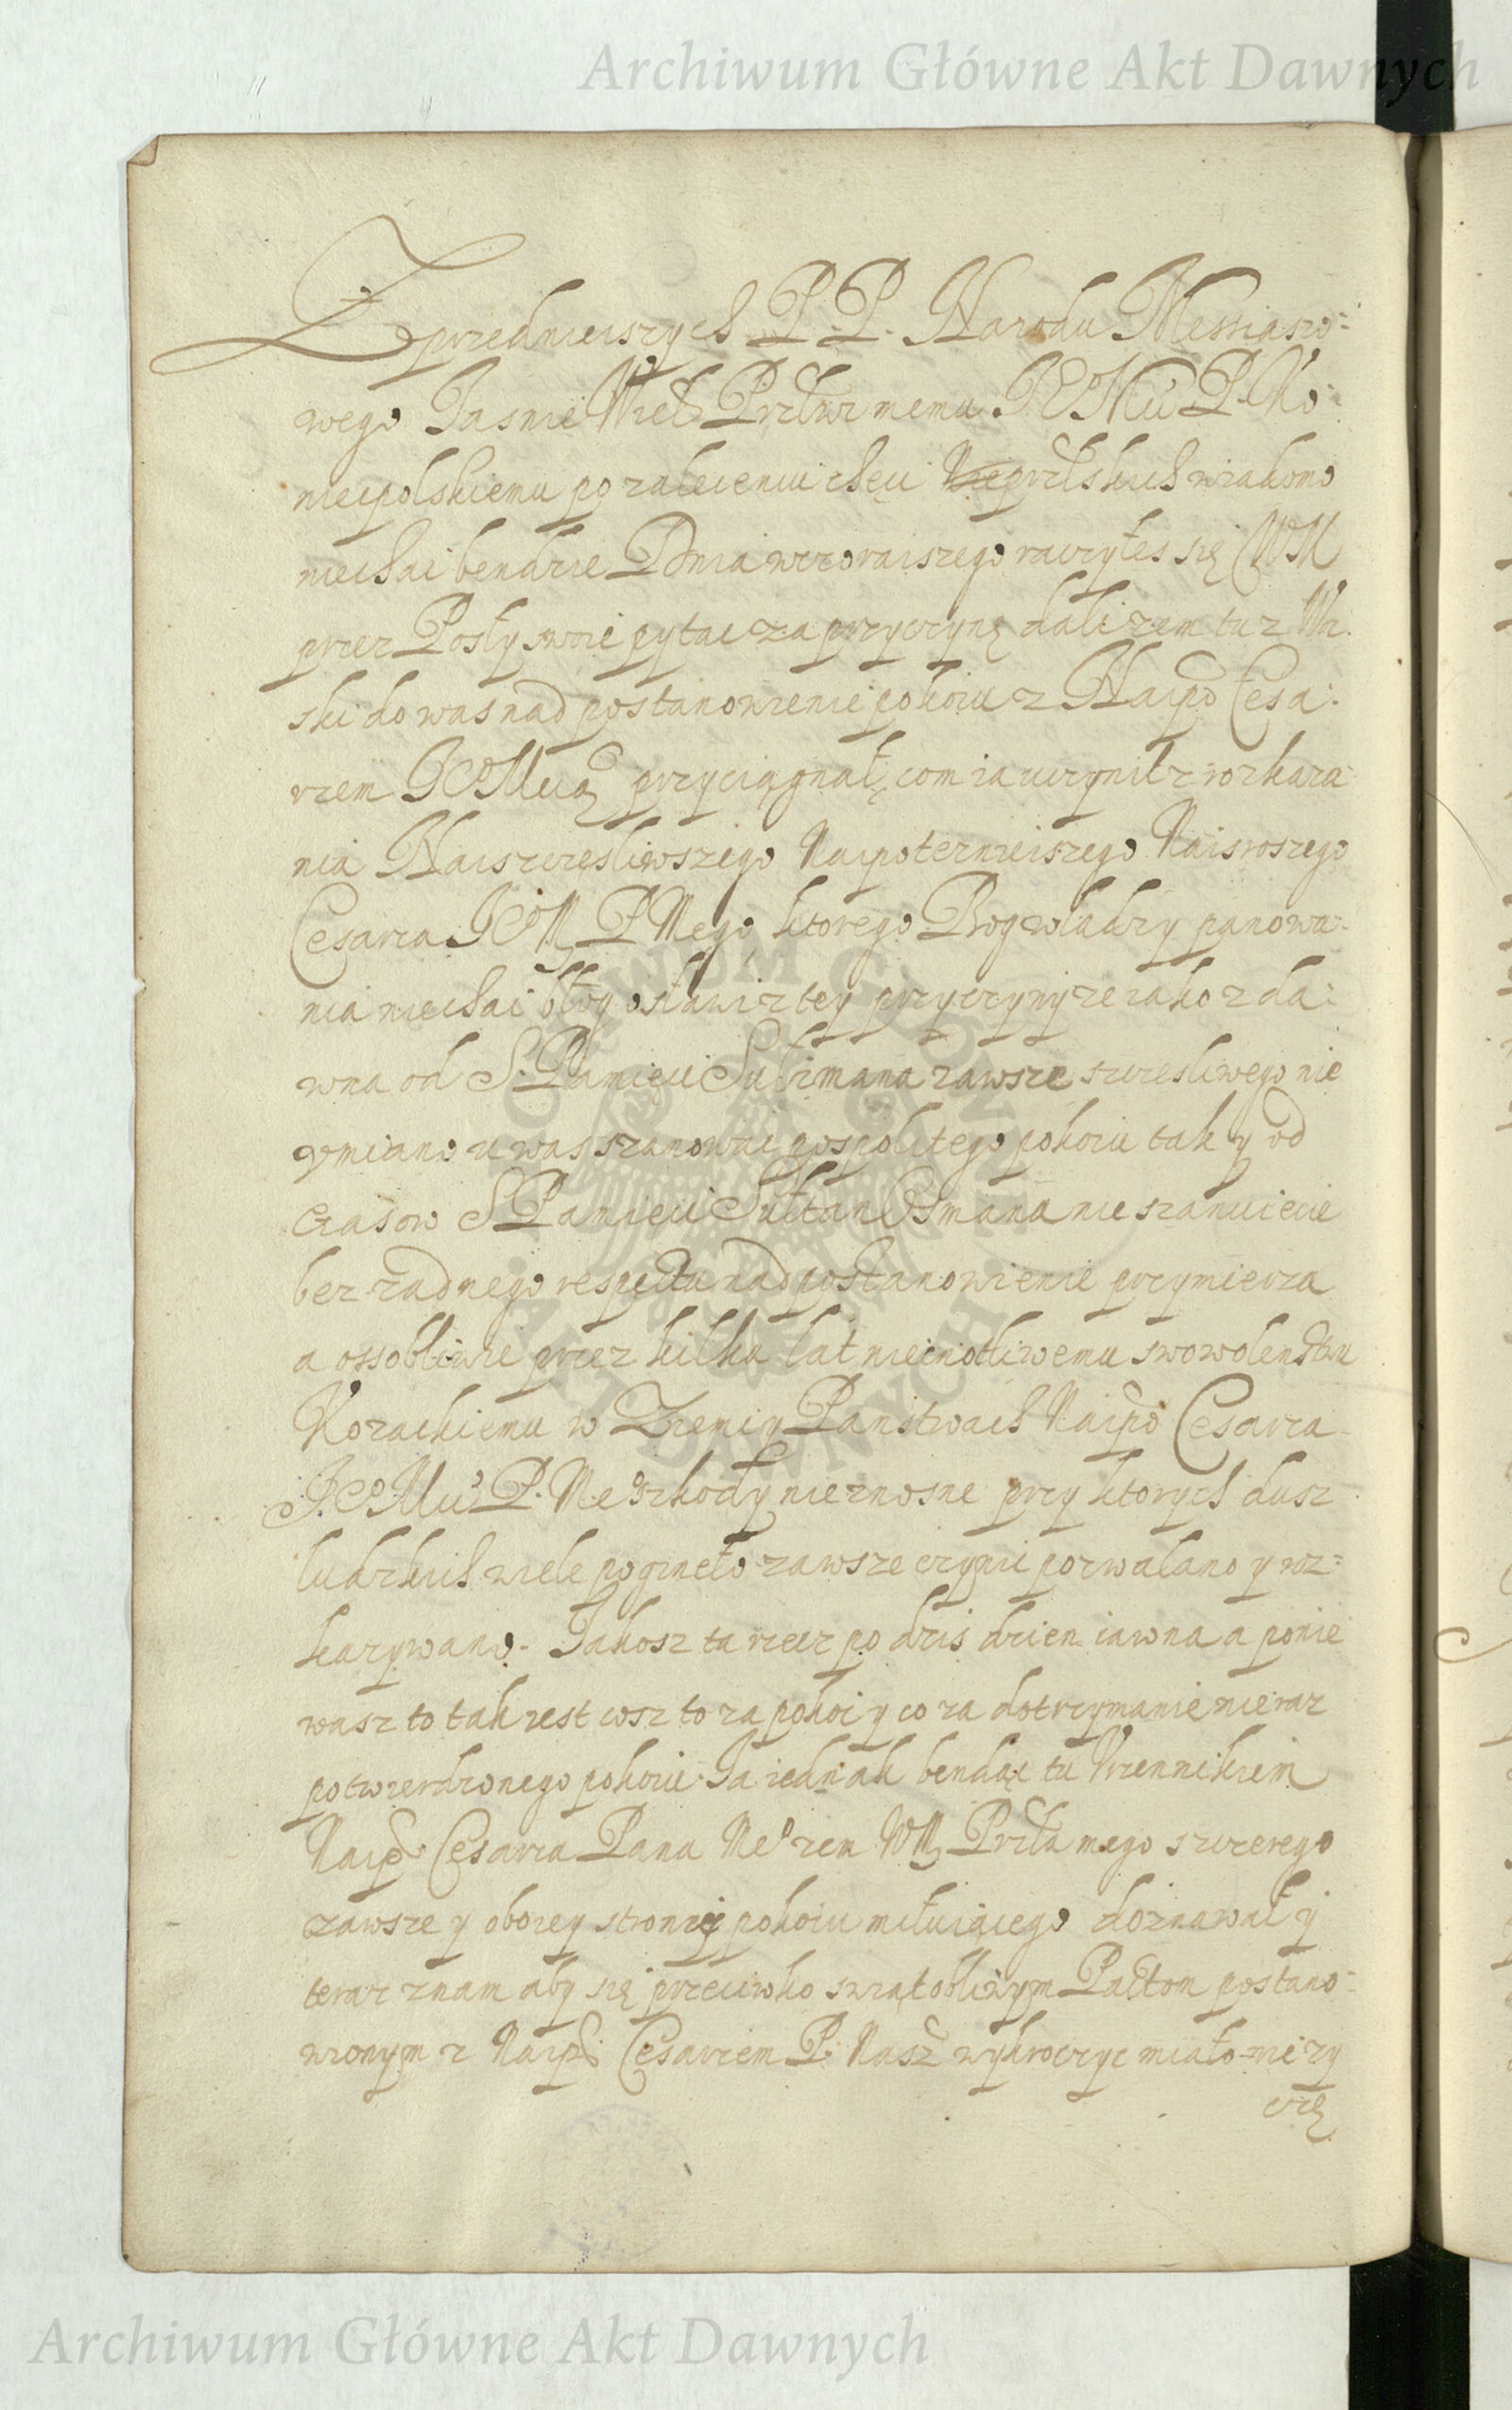 Archiwum Główne Akt Dawnych
Zprzednieiszych P. P. Narodu Messiaszo-
wego Jasnie Wiel Przłwi memu JEoMci P. Ko-
niecpolskiemu po zaleceniu chęci przłskich wiadomo
niechai bendzie Dnia wczoraiszego raczyłes się WM
przez Posły swoie pytac za przyczynę dali zem tu z W.
ski do was nad postanowienie pokoiu z Naipo Cesa-
rzem JEoMcią przyciągnął, com ia uczynił z rozkaza
nia Naiszczęsliwszego Naipotęznieiszego Naisroszego
Cesarza JEoM P Mego ktorego Bog wladzy panowa-
nia niechai błogosławi z tey przyczyny ze iako z da-
wna od S. Pamięci Sulimana zawsze szczesliwego nie
umiano u was szanowac pospolitego pokoiu tak y od
czasow S Pamięci Sułtan Osmana nie szanuiecie
bez zadnego respectu nad postanowienie przymierza
a ossobliwie przez kilka lat niecnotliwemu swowolenstwu
Kozackiemu w Ziemi y Panstwach Naipo Cesarza
JEo Mci P. Meo szkody nieznosne przy ktorych dusz
ludzkich wiele pogineło zawsze czynic pozwalano y roz-
kazywano. Jakosz ta rzecz po dzis dzien iawna a ponie
wasz to tak iest cosz to za pokoi y co za dotrzymanie nieraz
potwierdzonego pokoiu. Ja iednak bendąc tu Vrzennikiem
Naipo Cesarza Pana Meo zem WM Przła mego szczerego
zawsze y oboiey stronie pokoiu miłuiącego doznawał y
teraz znam aby się przeciwko swiątobliwym Pactom postano-
wionym z Naipo Cesarzem P. Nasz wykroczyc miało nie zy
czę
Archiwum Główne Akt Dawnych